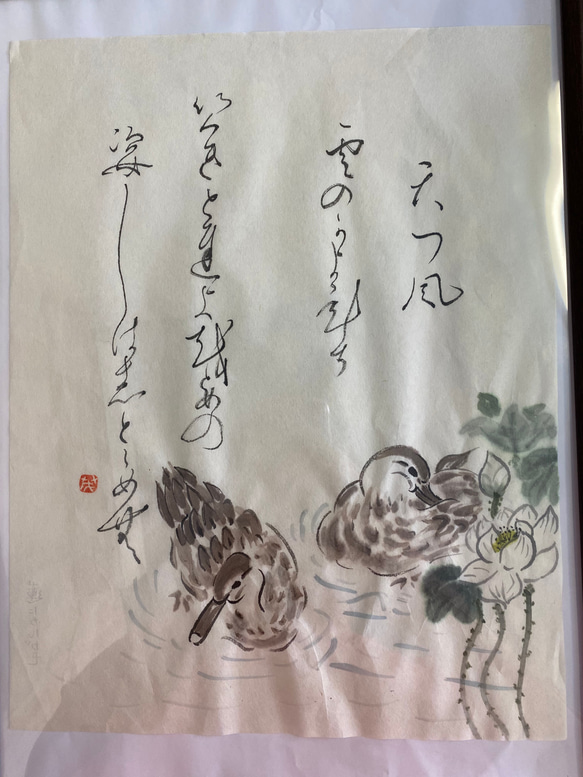 天つ風
雲のかよひち
吹きとちよをとめの
姿しはしとゝめむ